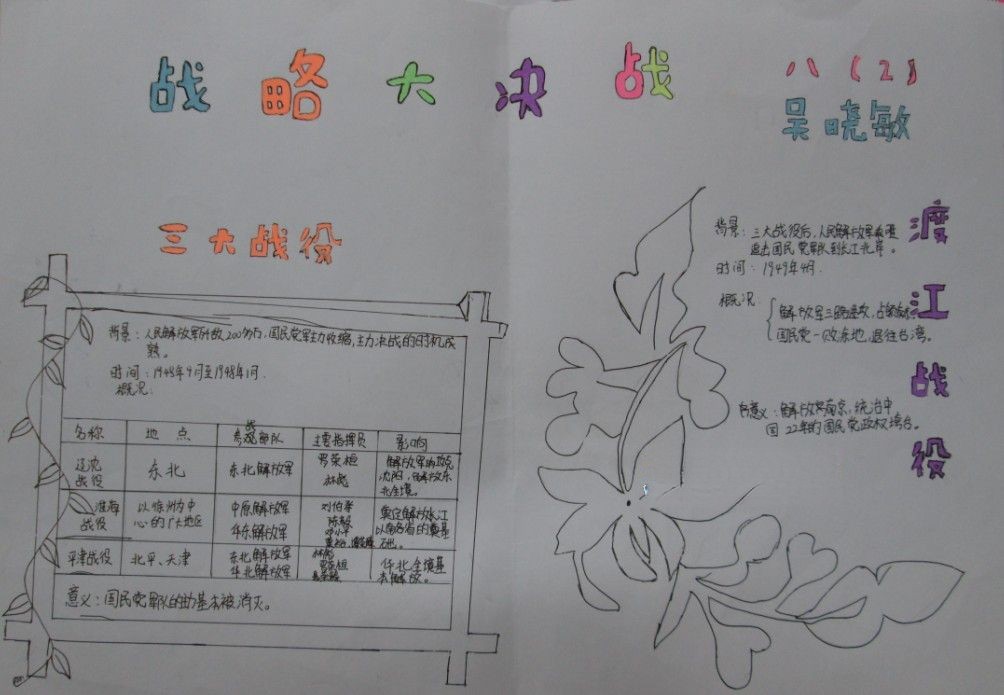 战略大决战
八（2）
吴晓敏
三大战役
背景：人民解放军所数200多万，国民党军主力收缩，主力决战的时机成
熟。
时间：1948年9月至1948年1月.
概况：
名称 地点 参战部队 主要指挥员 影响
辽沈战役 东北 东北解放军 罗荣桓 林彪 解放军攻克沈阳，解放东北全境。
淮海战役 以徐州为中心的广大地区 中原解放军 华东解放军 刘伯承 陈毅 邓小平 奠定解放长江以南各省的奠基石出。
平津战役 北平、天津 东北解放军 华北解放军 林彪 罗荣桓 华北全境基本解放。
意义：国民党军队的主力基本被消灭。
渡江战役
背景：三大战役后，人民解放军
追击国民党军队到长江北岸。
时间：1949年4月.
概况
解放军三路进攻，占领南京
国民党一败涂地，退往台湾。
意义：解放军南京，统治中
国22年的国民党政权垮台。